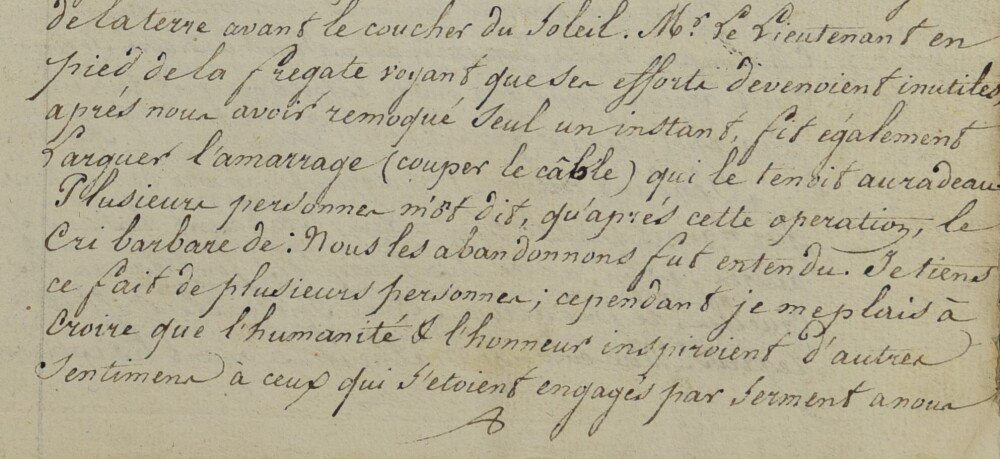 de la terre avant le coucher du Soleil. Mr. Le Lieutenant en
pied de la fregate voyant que ses efforts devenoient inutiles
aprés nous avoir remoqué Seul un instant, fit également
Larguer l'amarrage (couper le câble) qui le tenoit au radeau
Plusieurs personnes m'ot dit, qu'aprés cette operation, le
Cri barbare de: Nous les abandonnons fut entendu. Je tiens
ce fait de plusieurs personnes; cependant je me plais à
Croire que l'humanité & l'honneur inspiroient d'autres
Sentimens à ceux qui S'etoient engagés par Serment a nous